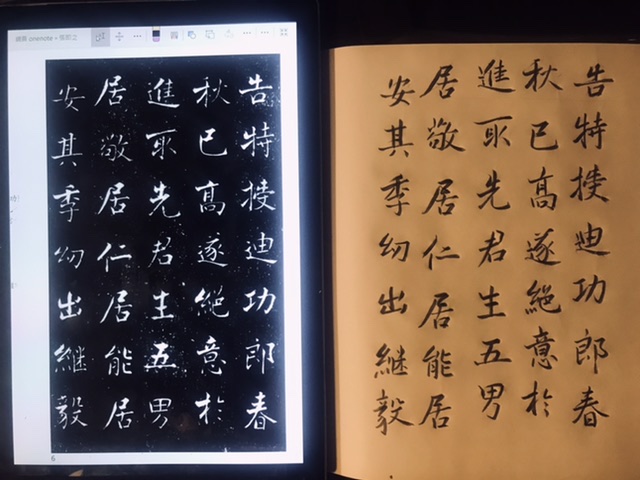 onenote
告特授迪功郎春
秋已高遂絕意於
進取先君生五男
居敬居仁居能居
安其季幼出継毅
6
告特授迪功郎春
秋已高遂絕意於
進取先君生五男
居敬居仁居能居
安其季幼出継毅